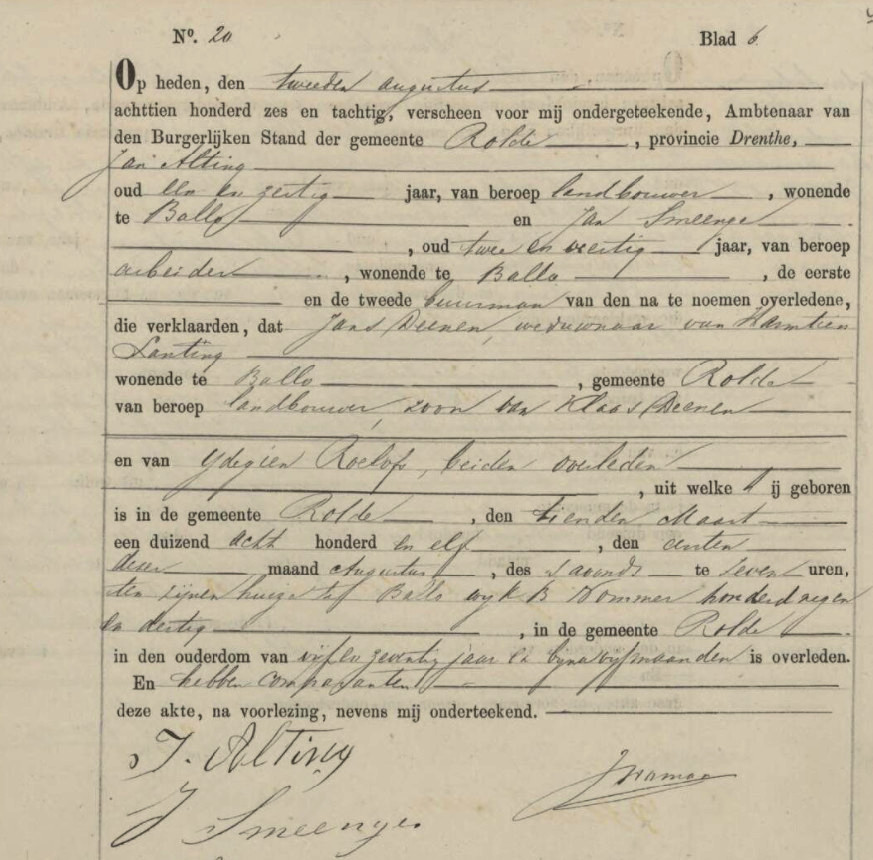 N°. 20 Blad 6
Op heden, den tweeden augustus
achttien honderd zes en tachtig, verscheen voor mij ondergeteekende, Ambtenaar van
den Burgerlijken Stand der gemeente Rolde, provincie Drenthe,
Jan Alting
oud een en zestig jaar, van beroep landbouwer, wonende
te Ballo en Jan Smeenge
, oud twee en veertig jaar, van beroep
arbeider, wonende te Ballo, de eerste
en de tweede buurman van den na te noemen overledene,
die verklaarden, dat Jans Deenen, weduwnaar van Harmtien
Lanting
wonende te Ballo, gemeente Rolde
van beroep landbouwer, zoon van Klaas Deenen
en van Ydegien Roelofs, beiden overleden
, uit welke hij geboren
is in de gemeente Rolde, den tienden Maart
een duizend acht honderd en elf, den eersten
dezer maand Augustus, des s'avonds te zeven uren,
ten zijnen huize te Ballo wijk B Nommer honderd negen
en dertig, in de gemeente Rolde.
in den ouderdom van vijf en zeventig jaar en bijna vijf maanden is overleden.
En hebben comparanten
deze akte, na voorlezing, nevens mij onderteekend.
J. Alting
J Smeenge